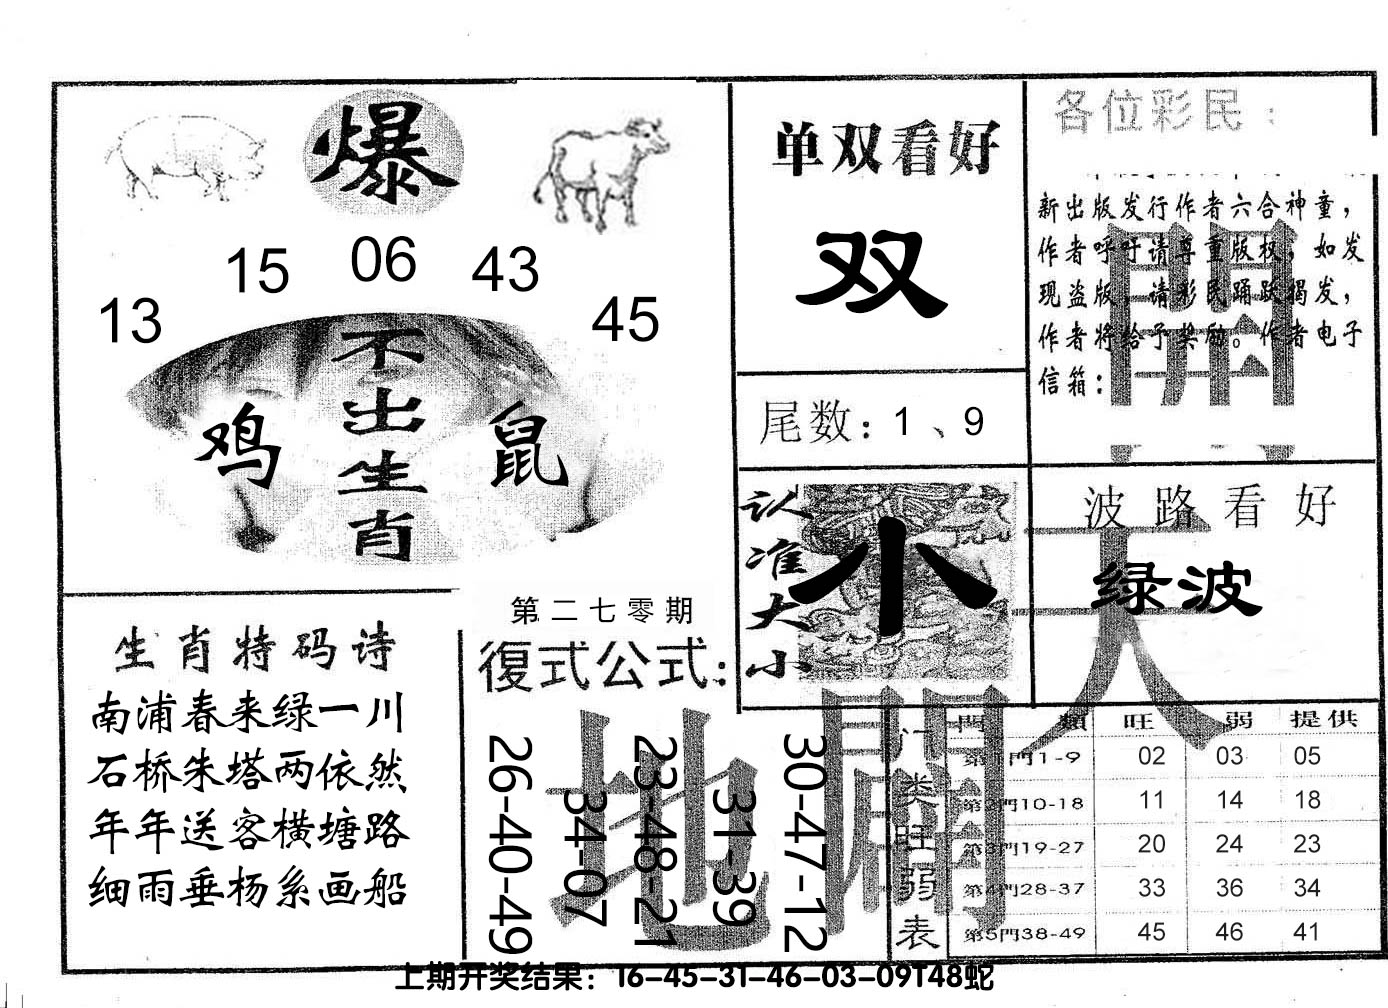 爆
13 15 06 43 45
不出生肖
鸡 鼠
单双看好
双
尾数：1、9
各位彩民：
新出版发行作者六合神童，
作者呼吁请尊重版权，如发
现盗版，请彩民踊跃揭发，
作者将给予奖励。作者电子
信箱：
認准大小
小
波路看好
绿波
天
開
生肖特码诗
南浦春来绿一川
石桥朱塔两依然
年年送客横塘路
细雨垂杨系画船
第二七零期
復式公式：
26-40-49
34-07
23-48-21
31-39
30-47-12
地
開
门类旺弱表
門 類 旺 弱 提供
第1門1-9 02 03 05
第2門10-18 11 14 18
第3門19-27 20 24 23
第4門28-37 33 36 34
第5門38-49 45 46 41
上期开奖结果：16-45-31-46-03-09T48蛇